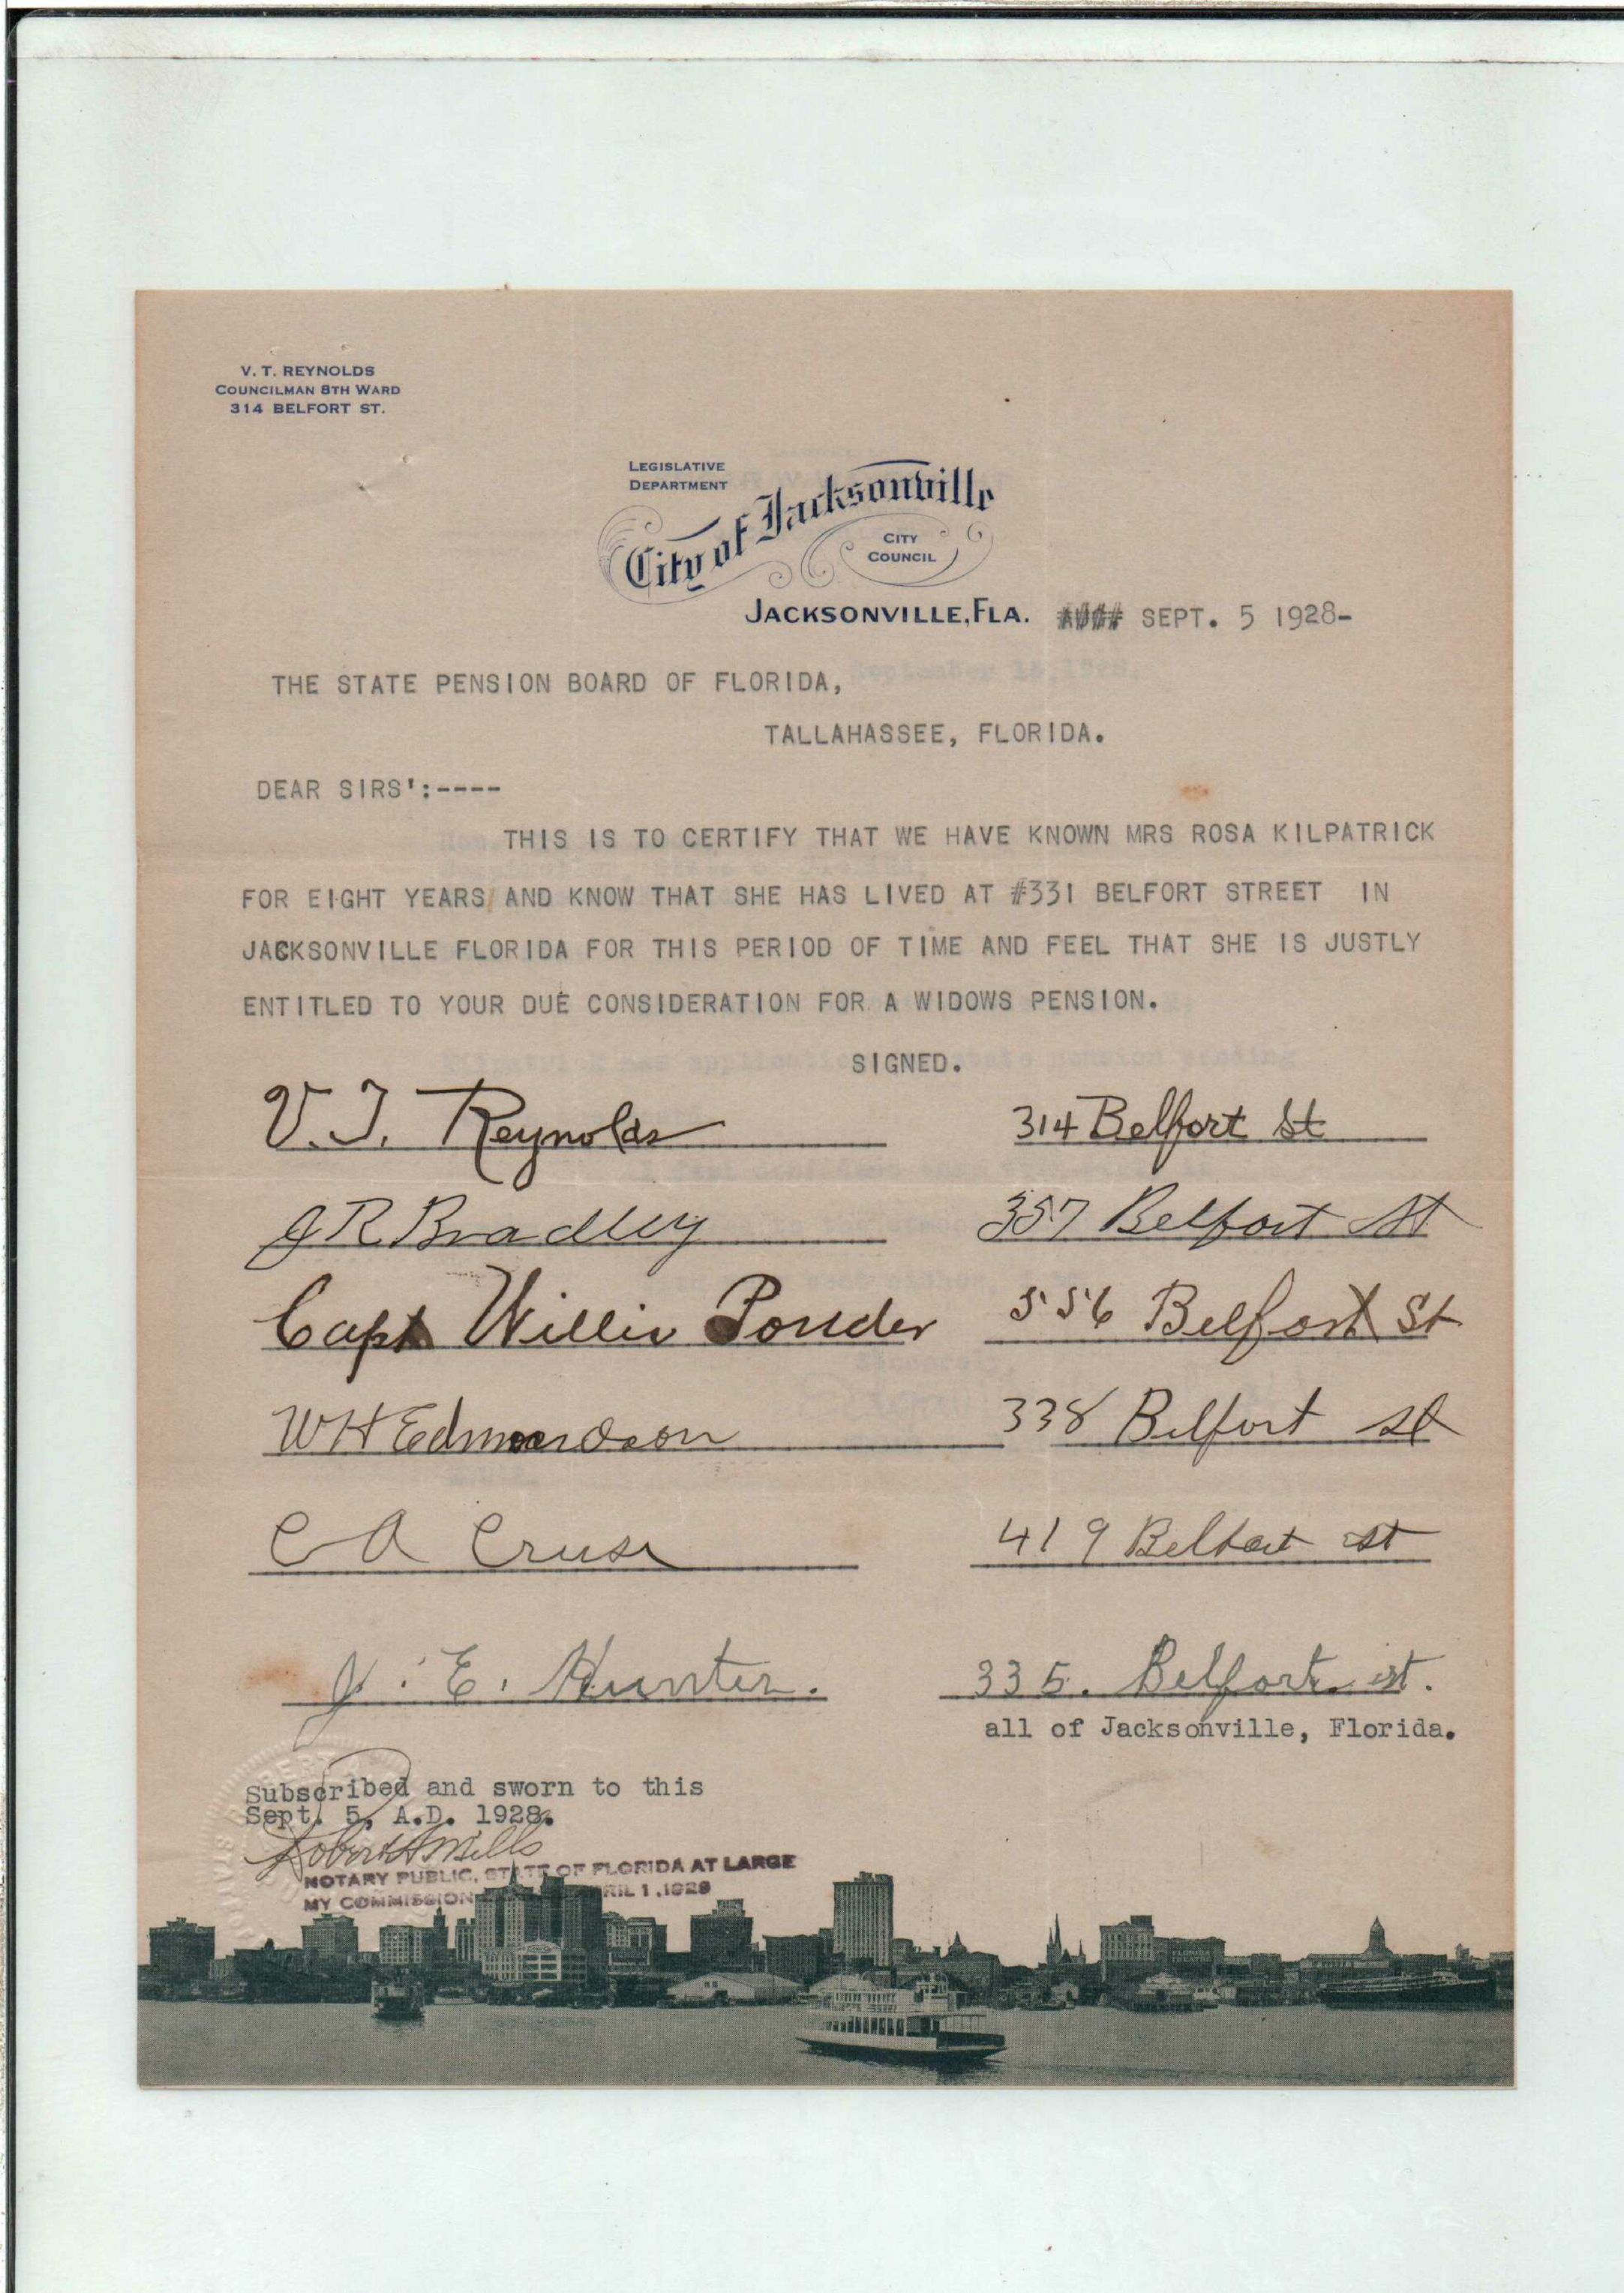 V. T. REYNOLDS
COUNCILMAN 8TH WARD
314 BELFORT ST.
LEGISLATIVE
DEPARTMENT
City of Jacksonville
CITY
COUNCIL
JACKSONVILLE, FLA. SEPT. 5 1928-
THE STATE PENSION BOARD OF FLORIDA,
TALLAHASSEE, FLORIDA.
DEAR SIRS':----
THIS IS TO CERTIFY THAT WE HAVE KNOWN MRS ROSA KILPATRICK
FOR EIGHT YEARS AND KNOW THAT SHE HAS LIVED AT #331 BELFORT STREET IN
JACKSONVILLE FLORIDA FOR THIS PERIOD OF TIME AND FEEL THAT SHE IS JUSTLY
ENTITLED TO YOUR DUE CONSIDERATION FOR A WIDOWS PENSION.
SIGNED.
V. T. Reynolds 314 Belfort St
J R Bradley 357 Belfort St
Capt Willie Ponder 556 Belfort St
W H Edmondson 338 Belfort St
C A Cruse 419 Belfort st
J. E. Hunter. 335. Belfort. st.
all of Jacksonville, Florida.
Subscribed and sworn to this
Sept. 5, A.D. 1928.
Robert A Mills
NOTARY PUBLIC, STATE OF FLORIDA AT LARGE
MY COMMISSION APRIL 1, 1929
FLORIDA
THEATRE